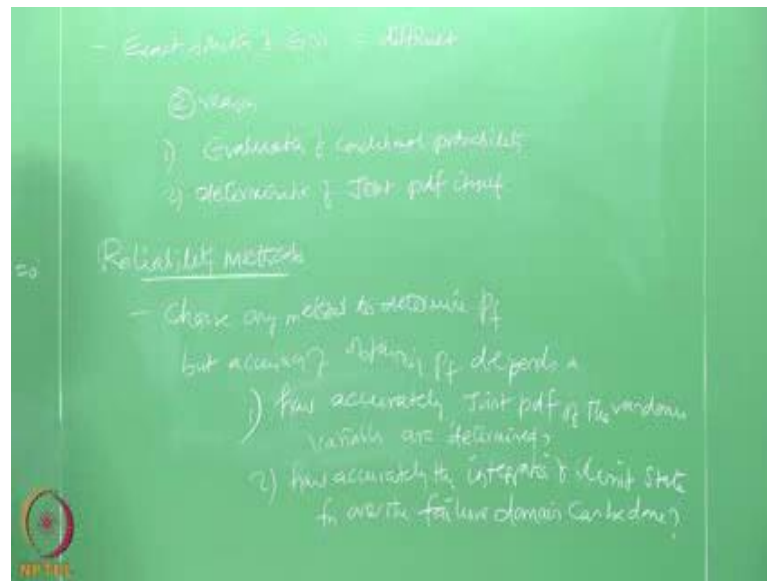 - Exact solution of is difficult
② reason
1) Evaluation of conditional probability
2) determination of Joint pdf itself
Reliability methods
- Choose any method to determine Pf
but accuracy of obtaining Pf depends on
1) how accurately Joint pdf of the random
variable are determined?
2) how accurately the integration of limit state
fn over the failure domain can be done?
NPTEL